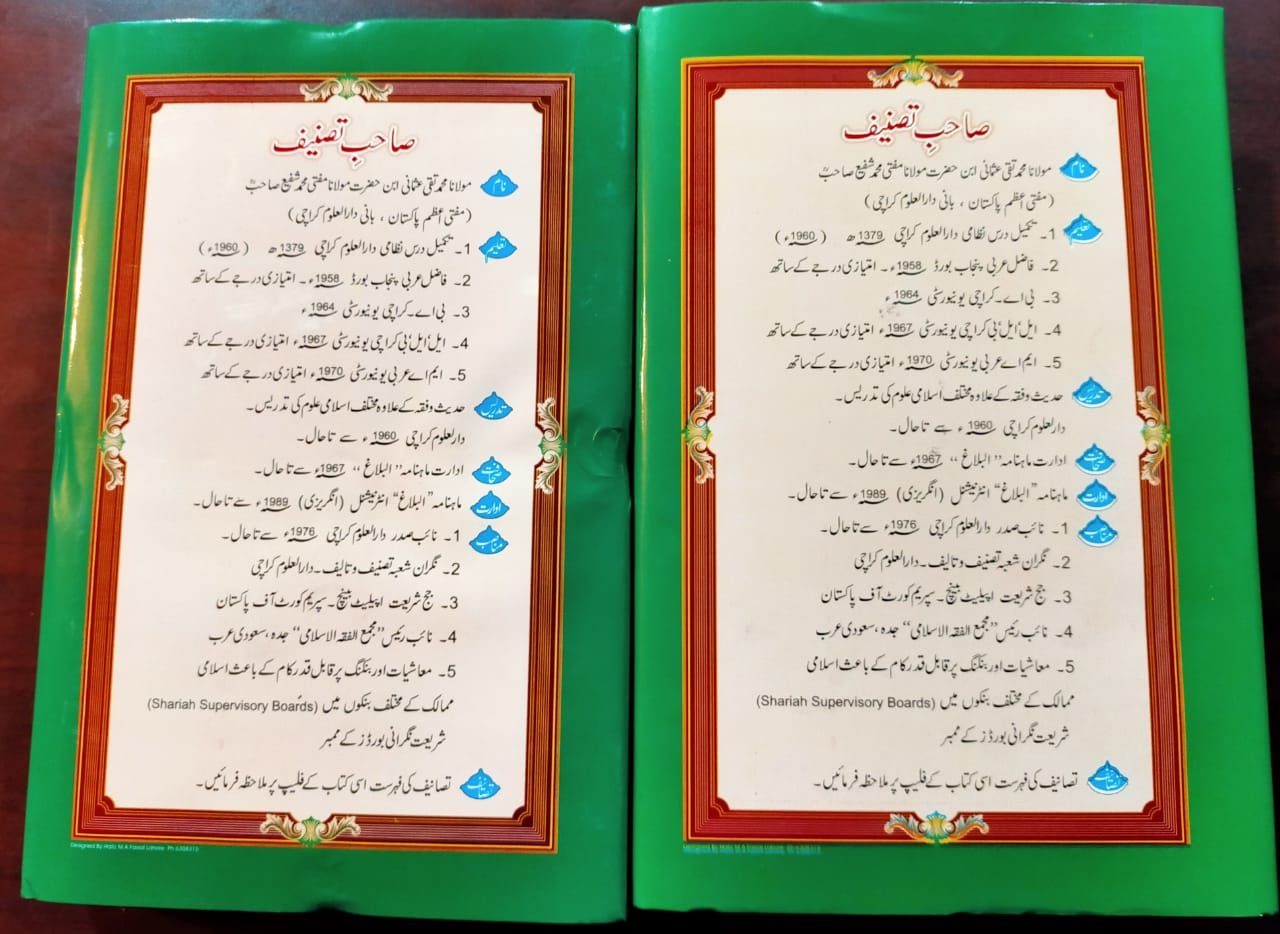 صاحبِ تصنیف
نام مولانا محمد تقی عثمانی ابن حضرت مولانا مفتی محمد شفیع صاحبؒ
(مفتی اعظم پاکستان ، بانی دارالعلوم کراچی)
تعلیم 1۔ تکمیل درس نظامی دارالعلوم کراچی 1379ھ (1960ء)
2۔ فاضل عربی پنجاب بورڈ 1958ء۔ امتیازی درجے کے ساتھ
3۔ بی اے۔کراچی یونیورسٹی 1964ء
4۔ ایل ایل بی کراچی یونیورسٹی 1967ء امتیازی درجے کے ساتھ
5۔ ایم اے عربی یونیورسٹی 1970ء امتیازی درجے کے ساتھ
تدریس حدیث وفقہ کے علاوہ مختلف اسلامی علوم کی تدریس۔
دارلعلوم کراچی 1960ء سے تاحال۔
صحافت ادارت ماہنامہ ”البلاغ“ 1967ء سے تاحال۔
ادارت ماہنامہ ”البلاغ“ انٹرنیشنل (انگریزی) 1989ء سے تاحال۔
مناصب 1۔ نائب صدر دارالعلوم کراچی 1976ء سے تاحال۔
2۔ نگران شعبہ تصنیف وتالیف۔دارالعلوم کراچی
3۔ جج شریعت اپیلیٹ بینچ۔ سپریم کورٹ آف پاکستان
4۔ نائب رئیس ”مجمع الفقہ الاسلامی“ جدہ ،سعودی عرب
5۔ معاشیات اور بنکنگ پر قابل قدر کام کے باعث اسلامی
ممالک کے مختلف بنکوں میں (Shariah Supervisory Boards)
شریعت نگرانی بورڈز کے ممبر
تصانیف تصانیف کی فہرست اسی کتاب کے فلیپ پر ملاحظہ فرمائیں۔
Designed By Hafiz M A Faisal Lahore
صاحبِ تصنیف
نام مولانا محمد تقی عثمانی ابن حضرت مولانا مفتی محمد شفیع صاحبؒ
(مفتی اعظم پاکستان ، بانی دارالعلوم کراچی)
تعلیم 1۔ تکمیل درس نظامی دارالعلوم کراچی 1379ھ (1960ء)
2۔ فاضل عربی پنجاب بورڈ 1958ء۔ امتیازی درجے کے ساتھ
3۔ بی اے۔کراچی یونیورسٹی 1964ء
4۔ ایل ایل بی کراچی یونیورسٹی 1967ء امتیازی درجے کے ساتھ
5۔ ایم اے عربی یونیورسٹی 1970ء امتیازی درجے کے ساتھ
تدریس حدیث وفقہ کے علاوہ مختلف اسلامی علوم کی تدریس۔
دارلعلوم کراچی 1960ء سے تاحال۔
صحافت ادارت ماہنامہ ”البلاغ“ 1967ء سے تاحال۔
ادارت ماہنامہ ”البلاغ“ انٹرنیشنل (انگریزی) 1989ء سے تاحال۔
مناصب 1۔ نائب صدر دارالعلوم کراچی 1976ء سے تاحال۔
2۔ نگران شعبہ تصنیف وتالیف۔دارالعلوم کراچی
3۔ جج شریعت اپیلیٹ بینچ۔ سپریم کورٹ آف پاکستان
4۔ نائب رئیس ”مجمع الفقہ الاسلامی“ جدہ ،سعودی عرب
5۔ معاشیات اور بنکنگ پر قابل قدر کام کے باعث اسلامی
ممالک کے مختلف بنکوں میں (Shariah Supervisory Boards)
شریعت نگرانی بورڈز کے ممبر
تصانیف تصانیف کی فہرست اسی کتاب کے فلیپ پر ملاحظہ فرمائیں۔